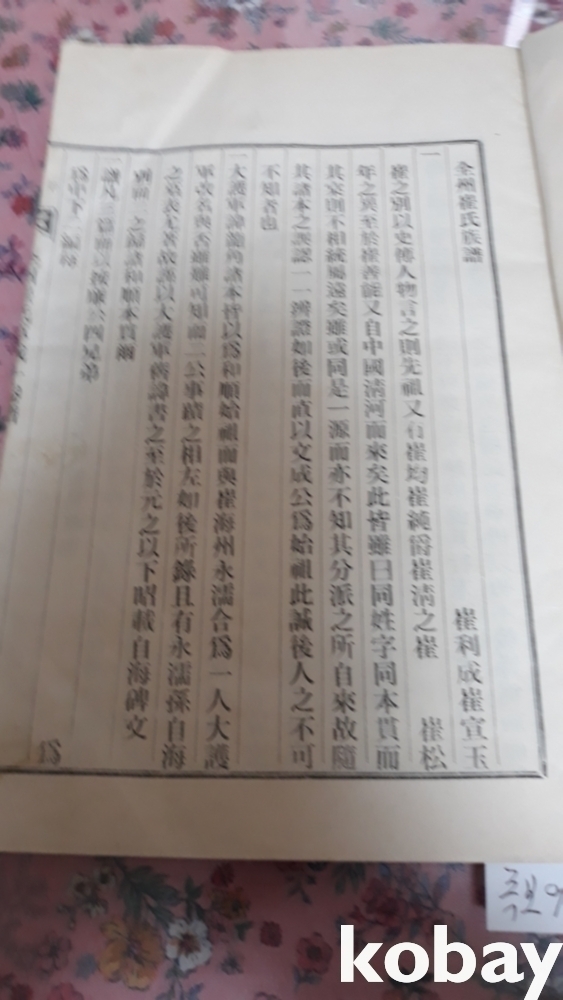 全州崔氏族譜 崔利成崔宣玉
一 崔之別以史傳人物言之則先祖又有崔均崔純爵崔淸之崔 崔松
年之異至於崔善能又自中國淸河而來矣此皆雖曰同姓字同本貫而
其宗則不相統屬遠矣雖或同是一源而亦不知其分派之所自來故隨
其諸本之誤認一一辨證如後而直以文成公爲始祖此誠後人之不可
不知者也
一大護軍諱龍角諸本皆以爲和順始祖而與崔海州永濡合爲一人大護
軍改名與否雖難可知而二公事蹟之相左如後所錄且有永濡孫自海
之墓表尤著故譜以大護軍舊諱書之至於元之以下昭載自海碑文
別 之歸諸和順本貫爾
一譜凡 公四兄弟
爲中下
족보
kobay